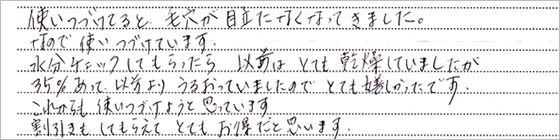 使いつづけてると、毛穴が目立たなくなってきました。
なので使いつづけています。
水分チェックしてもらったら 以前はとても乾燥していましたが
35%あって、以前よりうるおっていましたのでとても嬉しかったです。
これからも使いつづけようと思っています
割引きもしてもらえてとてもお得だと思います。